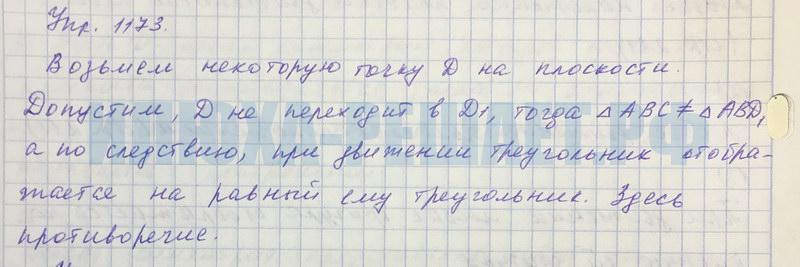 Упр. 1173.
Возьмем некоторую точку D на плоскости.
Допустим, D не переходит в D₁, тогда △ABC ≠ △ABD,
а по следствию, при движении треугольник отобра-
жается на равный ему треугольник. Здесь
противоречие.